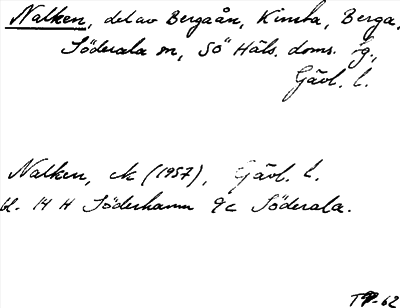 Nalken, del av Bergaån, Kinsta, Berga,
Söderala sn, SÖ Häls. doms. jg.,
Gävl. l.
Nalken, ek (1957), Gävl. l.
bl. 14 H Söderhamn 9c Söderala.